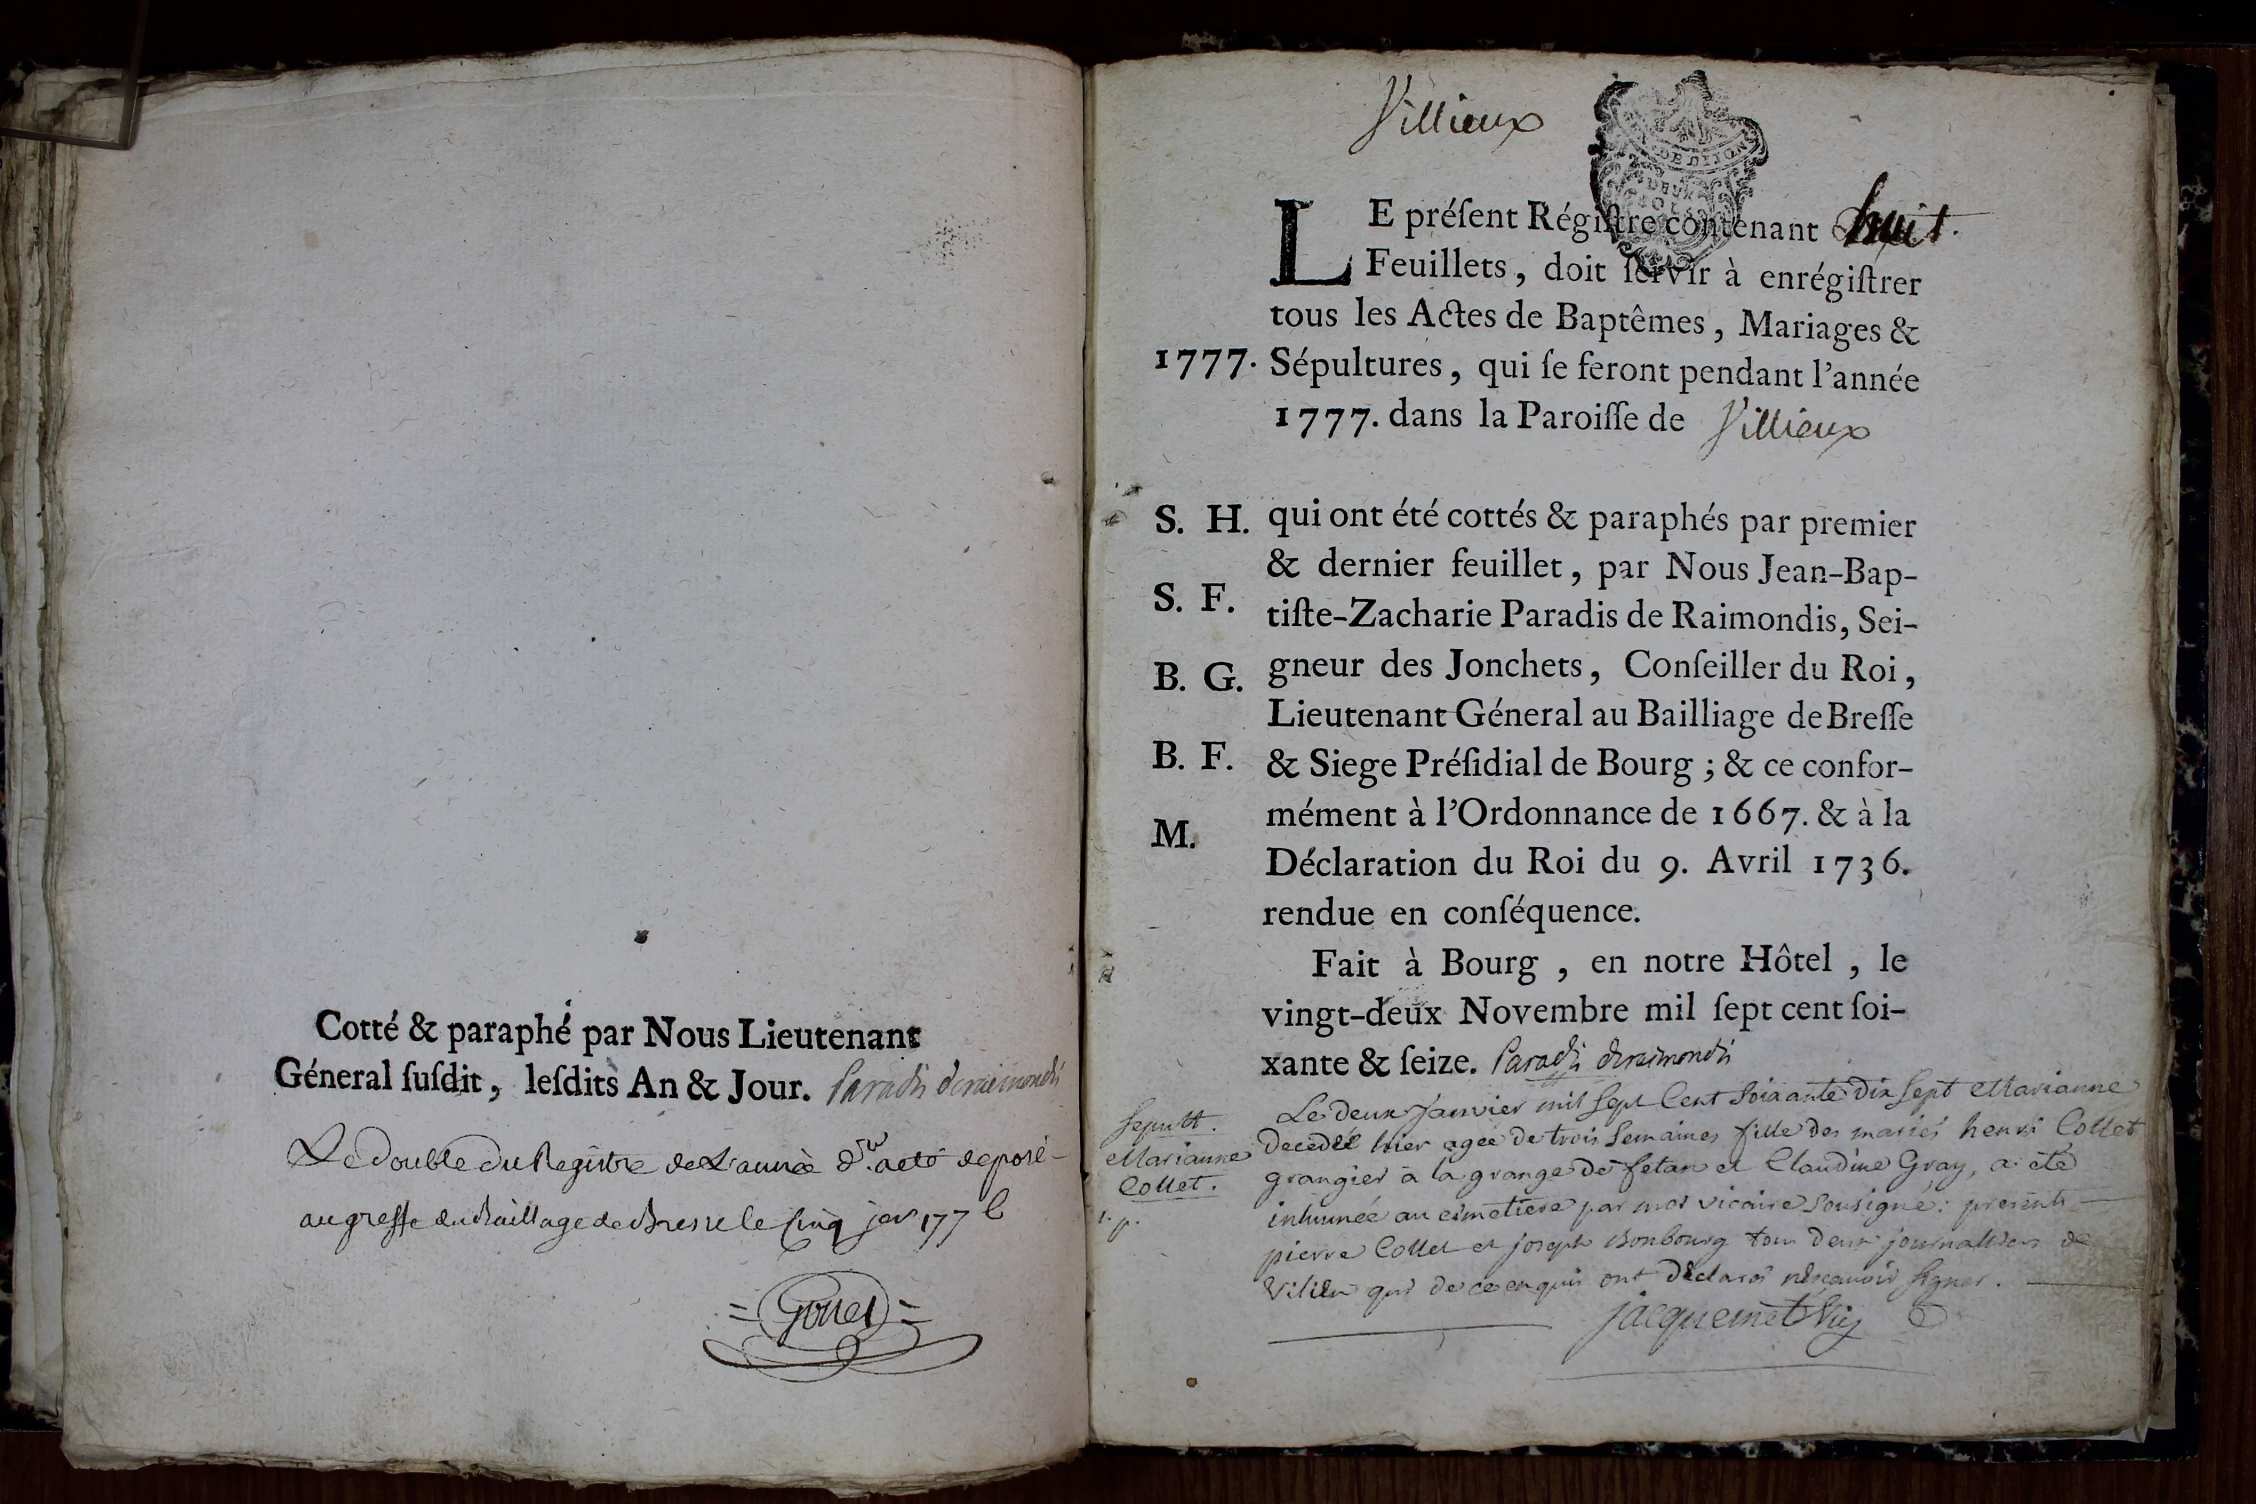 Cotté & paraphé par Nous Lieutenant
Géneral ſuſdit, leſdits An & Jour. Paradis deraimondis
Le double du Registre de L'année dre. a eté deposé
au greffe du Baillage de Bresse le cinq jer 177
Villieux
DE DIJON
DEUX
SOLS
LE préſent Régiſtre contenant huit.
Feuillets, doit ſervir à enrégiſtrer
tous les Actes de Baptêmes, Mariages &
1777. Sépultures, qui ſe feront pendant l'année
1777. dans la Paroiſſe de Villieux
S. H. qui ont été cottés & paraphés par premier
& dernier feuillet, par Nous Jean-Bap-
S. F. tiſte-Zacharie Paradis de Raimondis, Sei-
B. G. gneur des Jonchets, Conſeiller du Roi,
Lieutenant Géneral au Bailliage de Breſſe
B. F. & Siege Préſidial de Bourg ; & ce confor-
mément à l'Ordonnance de 1667. & à la
M. Déclaration du Roi du 9. Avril 1736.
rendue en conſéquence.
Fait à Bourg , en notre Hôtel , le
vingt-deux Novembre mil ſept cent ſoi-
xante & ſeize. Paradis deraimondis
Sepult.
Marianne
Collet.
1. p.
Le deux Janvier mil sept Cent soixante dix sept Marianne
decedée hier agée de trois semaines fille des mariés henri Collet
grangier à la grange de fetan et Claudine Gray, a été
inhumée au cimetiere par moi vicaire sousigné: presents
pierre Collet et joseph Bonbourg tous deux journalliers de
Vilieu qui de ce enquis ont déclarés ne scavoir signer.
jacquemet Vic